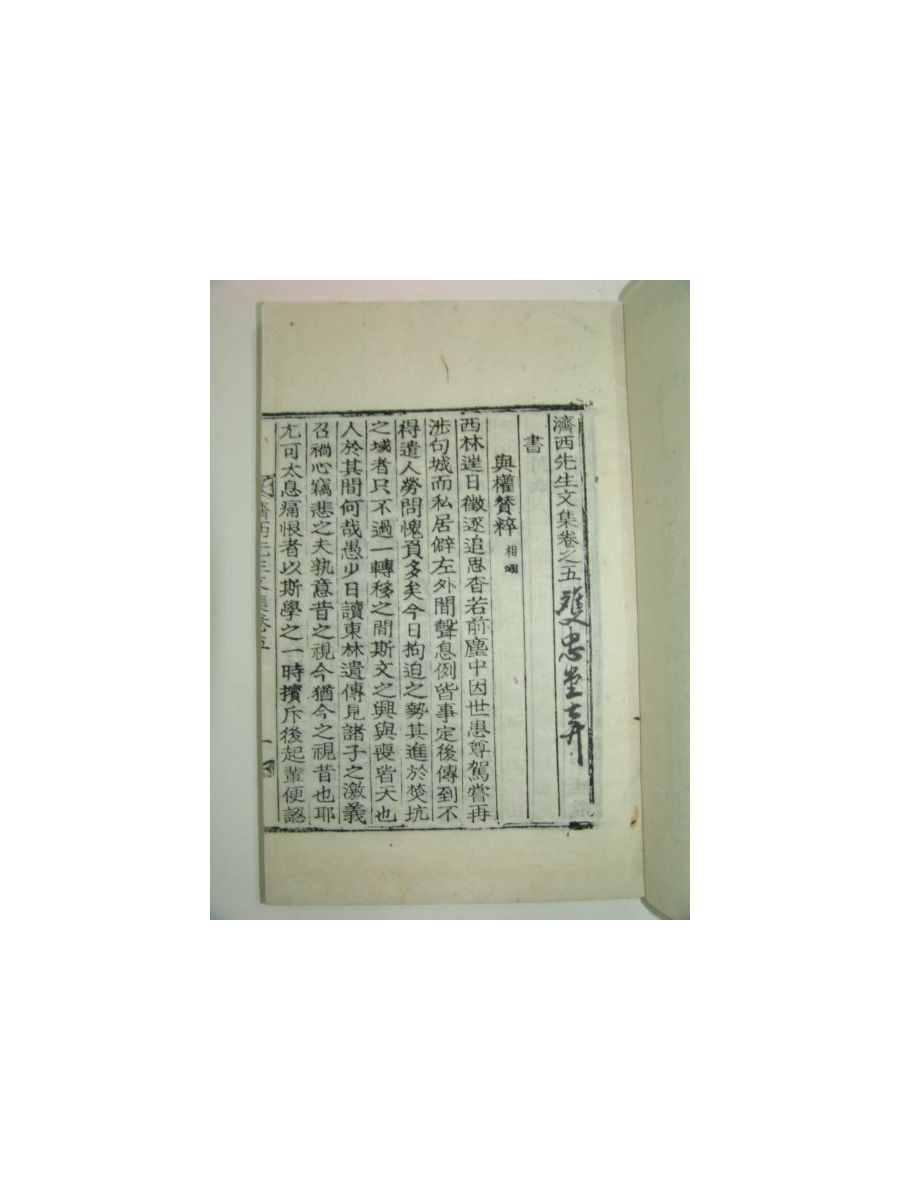 濟西先生文集卷之五 雙忠堂弆
書
與權贊粹 相
西林違日徵逐追思杳若前塵中因世患尊駕嘗再
涉句城而私居僻左外間聲息例皆事定後傳到不
得遣人勞問愧負多矣今日拘迫之勢其進於焚坑
之域者只不過一轉移之間斯文之興與喪皆天也
人於其間何哉愚少日讀東林遺傳見諸子之激義
召禍心竊悲之夫孰意昔之視今猶今之視昔也耶
尤可太息痛恨者以斯學之一時擯斥後起輩便認
濟西先生文集卷五
一